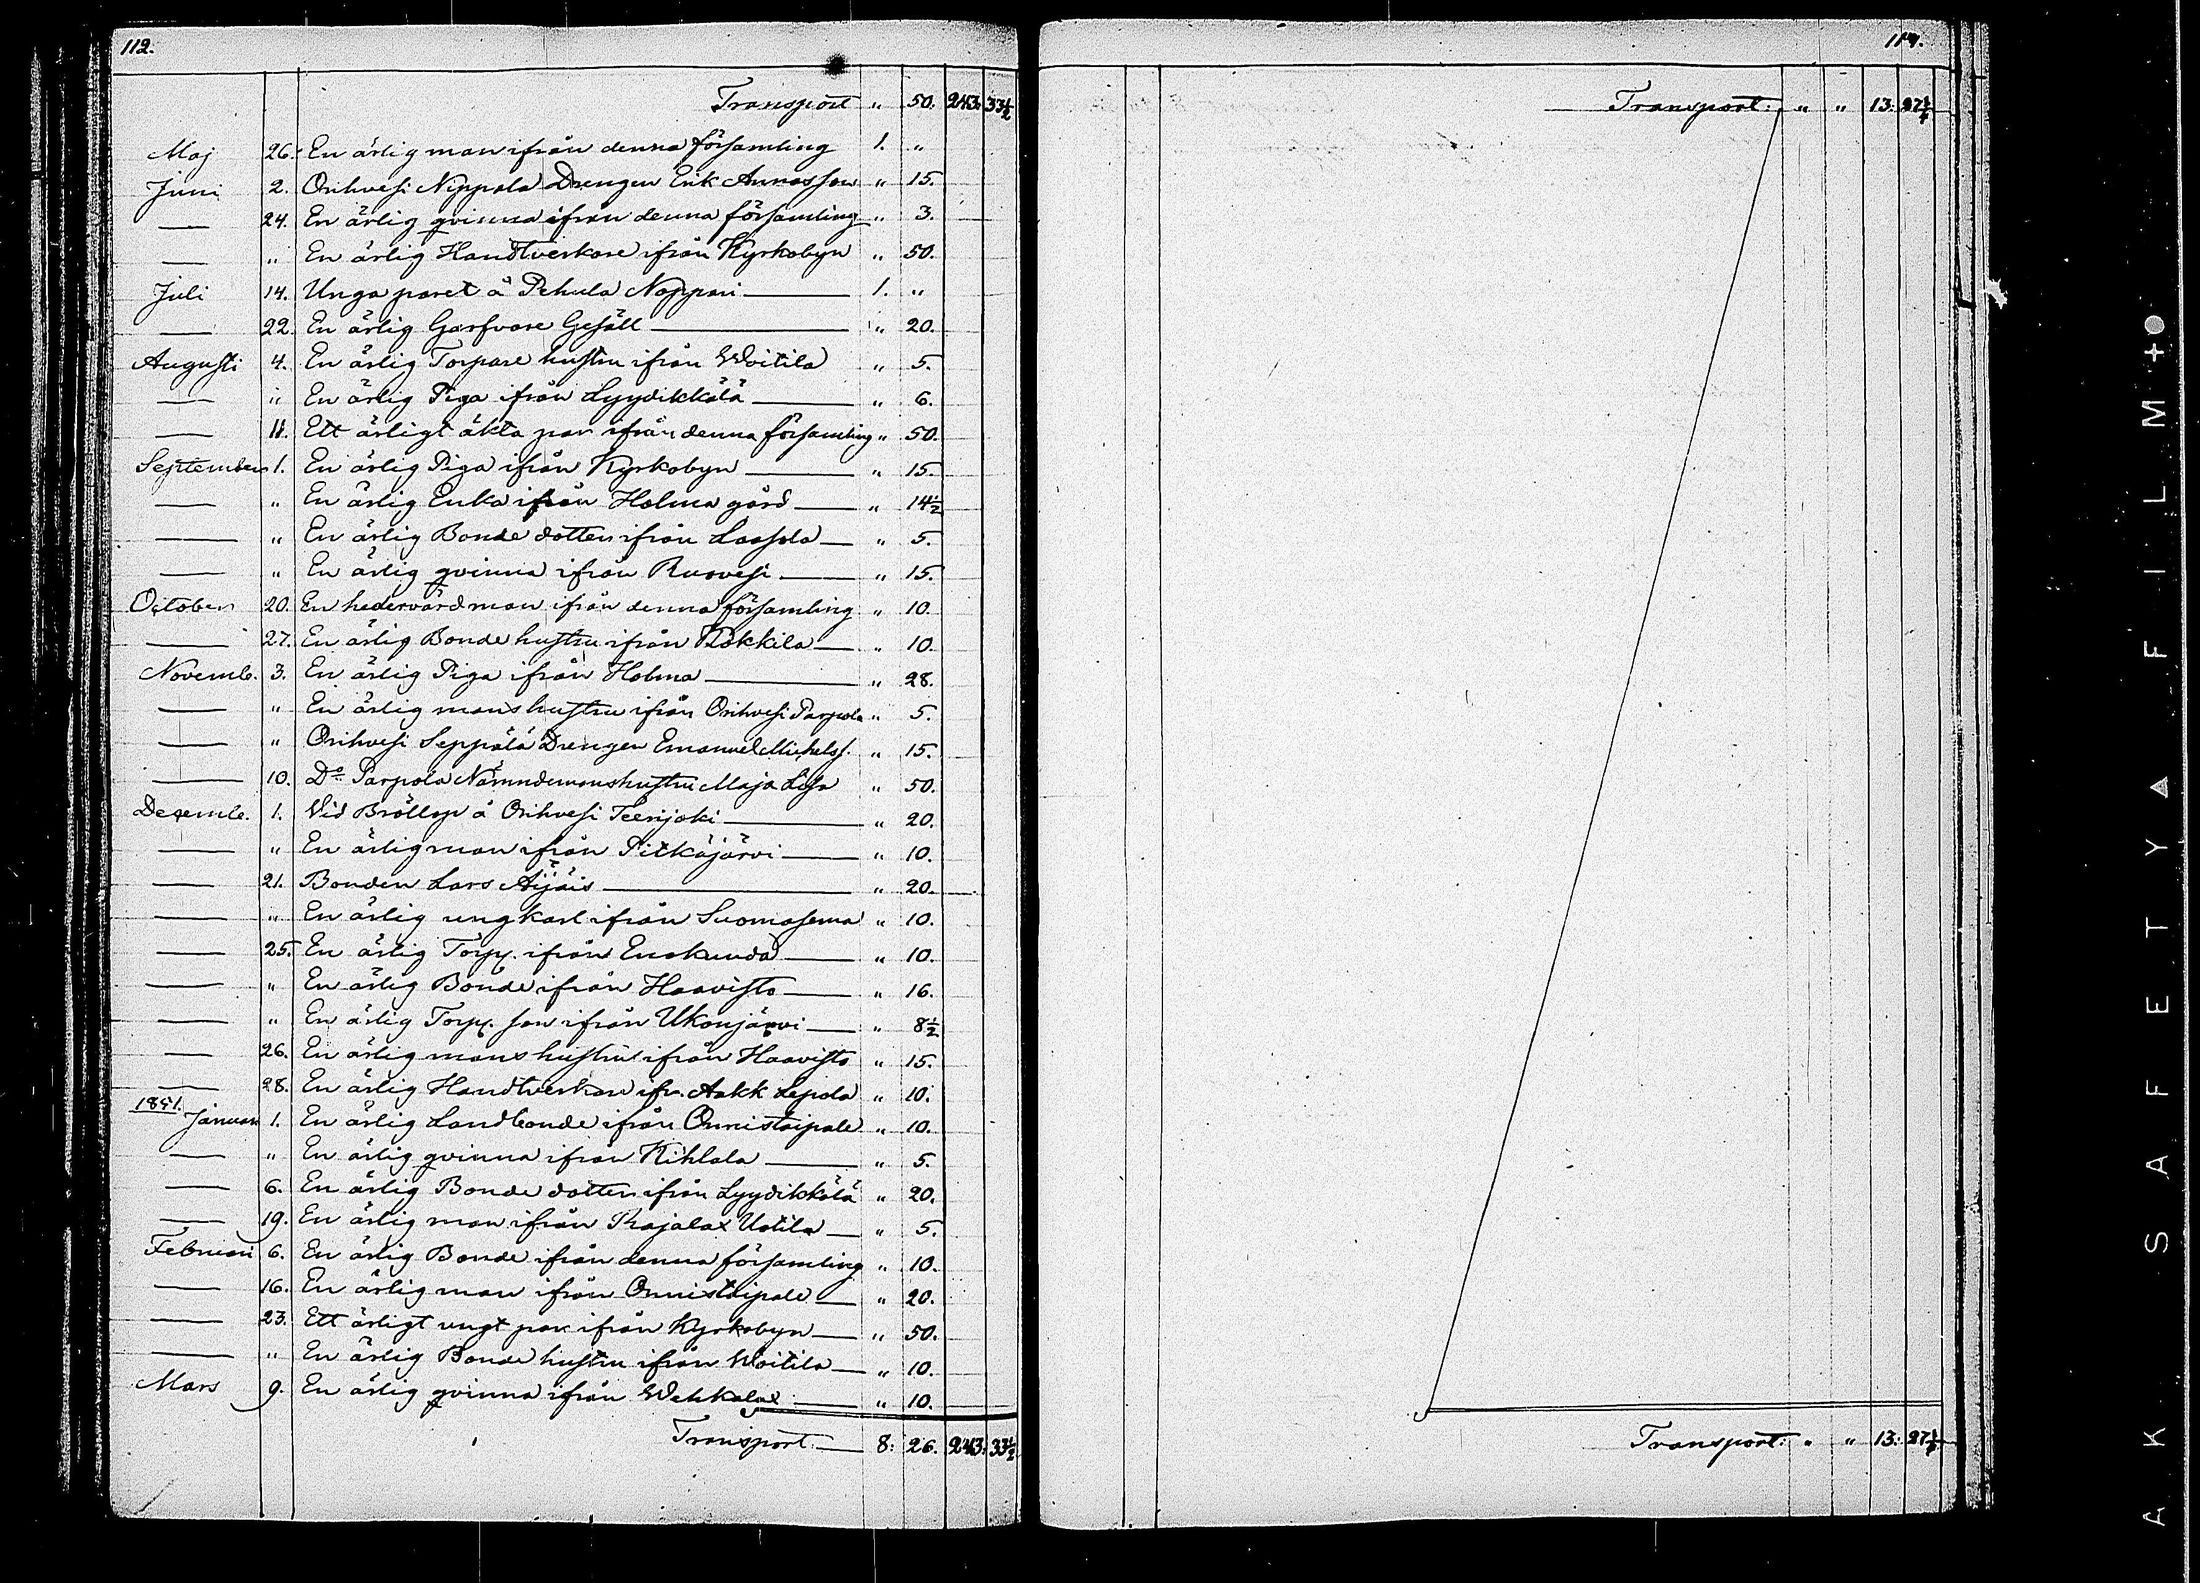 112.
Transport " 50. 243. 33½
Maj 26. En ärlig man ifrån denna församling 1. "
Juni 2. Orihvesi Nippala Drengen Erik Annasson " 15.
— 24. En ärlig qvinna ifrån denna församling " 3.
— " En ärlig Handtverkare ifrån Kyrkobyn " 50.
Juli 14. Unga paret å Pehula Nappari — 1. "
— 22. En ärlig Garfvare Gesäll — " 20.
Augusti 4. En ärlig Torpare hustru ifrån Woitila " 5.
— " En ärlig Piga ifrån Lyydikkälä — " 6.
— 11. Ett ärligt äkta par ifrån denna församling " 50.
September 1. En ärlig Piga ifrån Kyrkobyn — " 15.
— " En ärlig Enka ifrån Holma gård — " 14½
— " En ärlig Bonde dotter ifrån Laasola — " 5.
— " En ärlig qvinna ifrån Ruovesi — " 15.
October 20. En hedervärd man ifrån denna församling " 10.
— 27. En ärlig Bonde hustru ifrån Päkkilä — " 10.
Novemb. 3. En ärlig Piga ifrån Holma — " 28.
— " En ärlig mans hustru ifrån Orihvesi Parpola " 5.
— " Orihvesi Seppälä Drengen Emanuel Michelss. " 15.
— 10. Do Parpola Nämndemans hustru Maja Lisa " 50.
Decemb. 1. Vid Bröllop å Orihvesi Teerijoki — " 20.
— " En ärlig man ifrån Pitkäjärvi — " 10.
— 21. Bonden Lars Äijäis — " 20.
— " En ärlig ung karl ifrån Suomasema " 10.
— 25. En ärlig Torp. ifrån Enokunda — " 10.
— " En ärlig Bonde ifrån Haavisto — " 16.
— " En ärlig Torp. son ifrån Ukonjärvi — " 8½
— 26. En ärlig mans hustru ifrån Haavisto " 15.
— 28. En ärlig Handtverkare ifr. Aakk Lepola " 10.
1851.
Januari 1. En ärlig Landbonde ifrån Onnistaipale " 10.
— " En ärlig qvinna ifrån Kihlala — " 5.
— 6. En ärlig Bonde dotter ifrån Lyydikkälä " 20.
— 19. En ärlig man ifrån Rajalax Uotila — " 5.
Februari 6. En ärlig Bonde ifrån denna församling " 10.
— 16. En ärlig man ifrån Onnistaipale — " 20.
— 23. Ett ärligt ungt par ifrån Kyrkobyn — " 50.
— " En ärlig Bonde hustru ifrån Woitila — " 10.
Mars 9. En ärlig qvinna ifrån Wehkalax — " 10.
Transport. — 8. 26. 243. 33½
Transport: " " 13. 27¼
Transport: " " 13. 27¼
AK SAFETY ▲ FILM +●